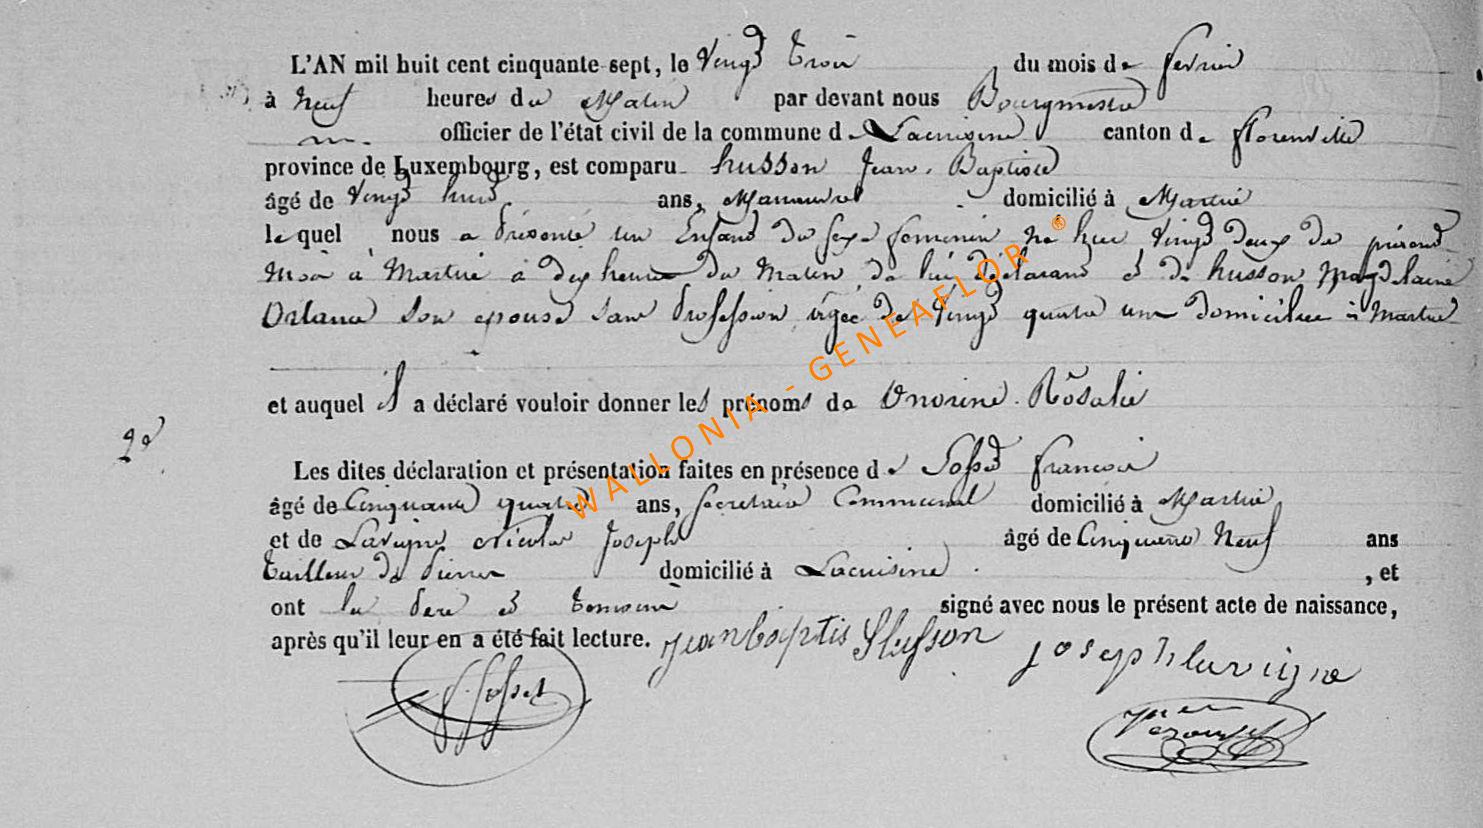 L'AN mil huit cent cinquante-sept, le Vingt trois du mois de fevrier
à Neuf heures du Matin par devant nous Bourgmestre
officier de l'état civil de la commune de Lacuisine canton de florenville
province de Luxembourg, est comparu husson Jean-Baptiste
âgé de Vingt huit ans, Manœuvre domicilié à Martué
lequel nous a présenté un Enfant du sexe feminin né hier Vingt deux du présent
Mois à Martué à dix heures du Matin de lui déclarant et de husson Magdelaine
son epouse sans profession âgée de Vingt quatre ans domiciliée à Martué
et auquel il a déclaré vouloir donner les prénoms de Onorine Rosalie
2e
Les dites déclaration et présentation faites en présence de Josset francois
âgé de Cinquante quatre ans, secretaire Communal domicilié à Martué
et de Lavigne Nicolas Joseph âgé de Cinquante Neuf ans
tailleur de Pierres domicilié à Lacuisine , et
ont le Pere et temoins signé avec nous le présent acte de naissance,
après qu'il leur en a été fait lecture. jean baptis Husson joseph lavigne
f. Josset
WALLONIA - GENEAFLOR ®